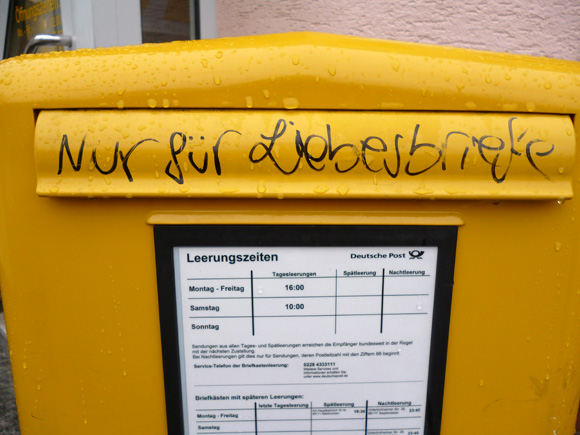 Öffnungszeiten
Nur für Liebesbriefe
Leerungszeiten
Deutsche Post
Tagesleerungen Spätleerung Nachtleerung
Montag - Freitag 16:00
Samstag 10:00
Sonntag
Sendungen aus allen Tages- und Spätleerungen erreichen die Empfänger bundesweit in der Regel
mit der nächsten Zustellung.
Bei Nachtleerungen gilt dies nur für Sendungen, deren Postleitzahl mit den Ziffern 66 beginnt.
Service-Telefon der Briefkastenleerung: 0228 4333111
Weitere Services und
Informationen erhalten Sie
unter www.deutschepost.de
Briefkästen mit späteren Leerungen:
letzte Tagesleerung Spätleerung Nachtleerung
Montag - Freitag 23:45
Samstag